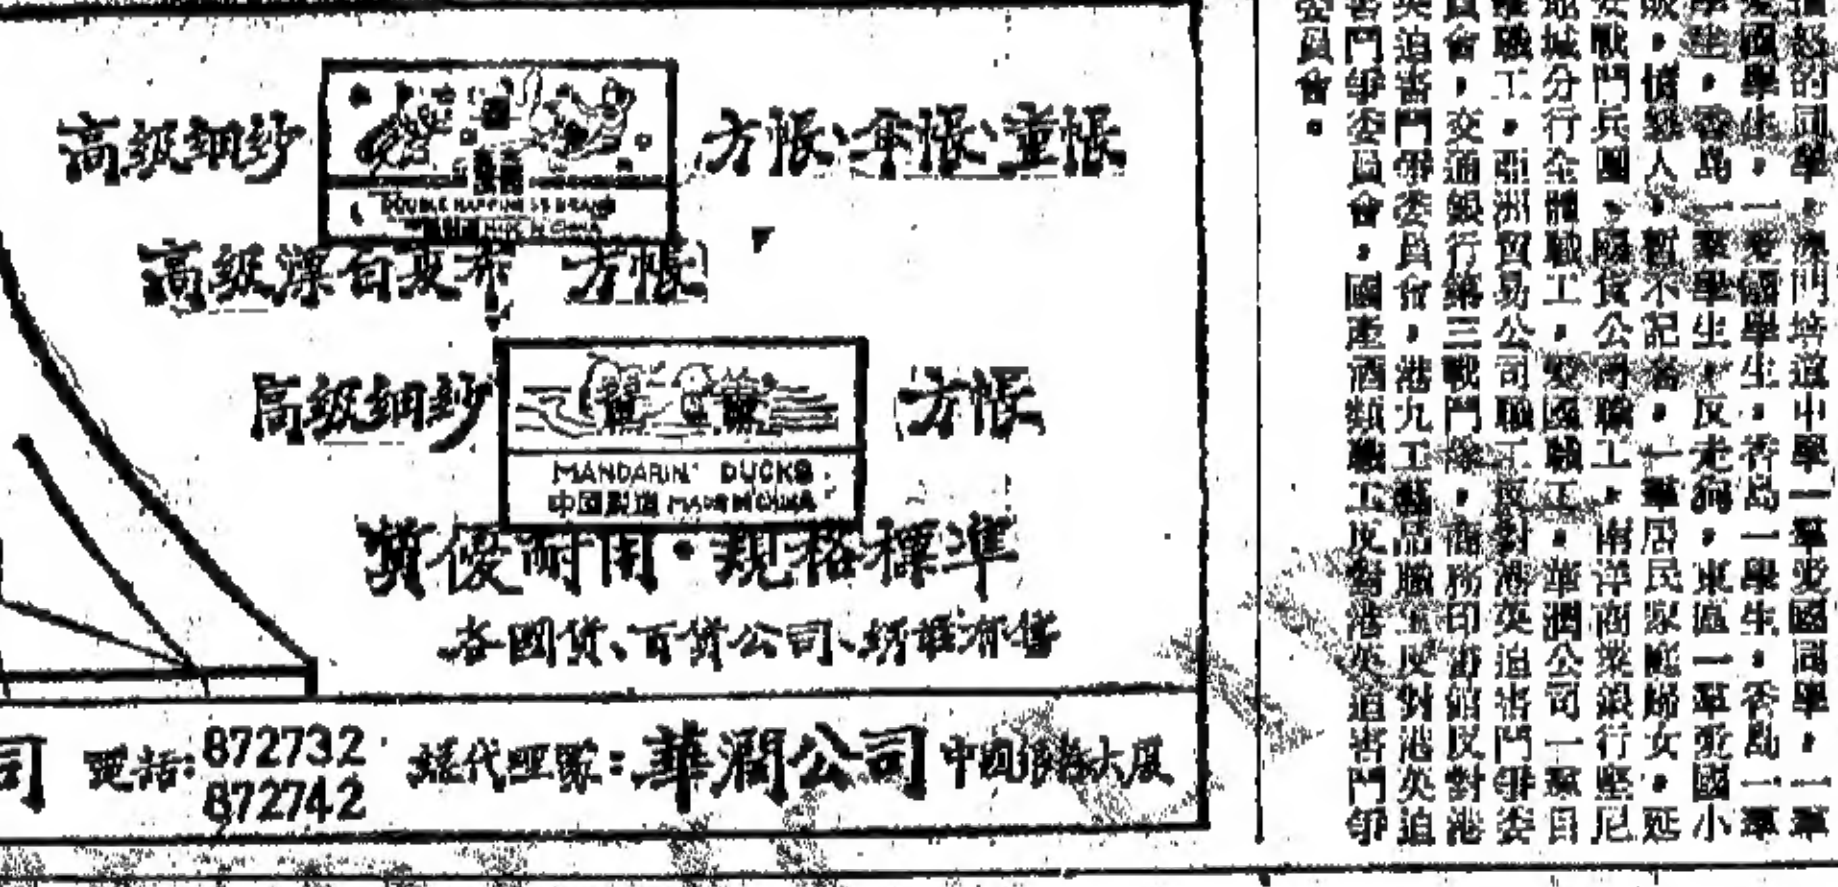 高級細紗
DOUBLE HAPPINESS BRAND
MADE IN CHINA
方帳、年帳、童帳
高級漂白夏布 方帳
高級細紗
MANDARIN DUCKS
中國製造 MADE IN CHINA
方帳
質優耐用·規格標準
各國貨、百貨公司、均有售
司 電話:872732
872742
總代理:華潤公司 中國銀行大廈
怒的同學,澳門培道中學一羣愛國同學,一羣
愛國學生,一羣愛國學生,香島一學生,香島一羣
學生,香島一羣學生,反走狗,東區一羣愛國小
人,暫不記名,一羣居民家庭婦女,延
戰鬥兵團、國貨公司職工,南洋商業銀行堅尼
地城分行全體職工,愛國職工,華潤公司一羣目
職工,亞洲貿易公司職工反對港英迫害鬥爭委
員會,交通銀行第三戰鬥隊,商務印書館反對港
英迫害鬥爭委員會,港九工藝品職工反對港英迫
害鬥爭委員會,國產酒類職工反對港英迫害鬥爭
委員會。